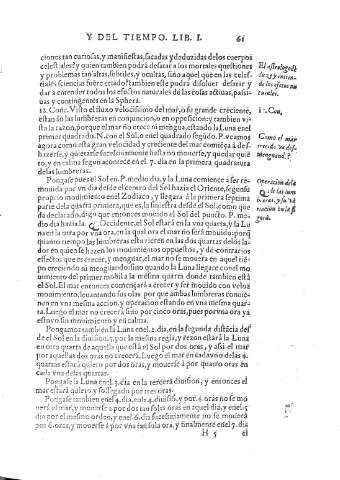 Y DEL TIEMPO. LIB. I. 61
ciones tan curiosas, y manifiestas, sacadas y deduzidas de los cuerpos
celestiales? y quien tambien podrà desatar a los mortales questiones
y problemas tan altas, sobtiles, y ocultas, sino aquel que en las celes-
tiales sciencias fuere criado? tambien este podrà declarar y
dar a entender todos los efectos naturales de las cosas actiuas, passi-
uas y contingentes en la Sphera.
12. Conc. Visto el fluxo velocissimo del mar, o su grande creciente,
estando las lumbreras en conjuncion o en opposicion; y tambien vi-
sta la razon, porque el mar no crece ni mengua, estando la Luna en el
primer quadrado. N. con el Sol, o en el quadrado segundo P. veamos
agora como esta gran velocidad y creciente del mar comiença à des-
hazerse, y quietarse succesiuamente hasta no mouerse, y quedar quie
to, en calma segun acontece en el 7. dia en la primera quadratura
de las lumbreras.
Pongase pues el Sol en P. medio dia, y la Luna comience a ser re-
mouida por vn dia desde el centro del Sol hazia el Oriente, segun su
proprio mouimiento en el Zodiaco, y llegarà à la primera septima
parte de la quarta primera, que es, la siniestra desde el Sol, como que
da declarado, digo que entonces mouido el Sol del puncto P. me-
dio dia hazia la Q. Occidente, el Sol estarà en la vna quarta, y la Lu
na en la otra por vna ora, en la qual ora el mar no serà mouido: porq̃
quanto tiempo las lumbreras estuuieren en las dos quartas del òs la-
dos en quien se hazen los mouimientos oppuestos, y de contrarios
effectos: que es crecer, y menguar, el mar no se mouera en aquel tie-
po creciendo ni menguando: sino quando la Luna llegare con el mo
uimiento del primer mobil a la mesma quarta donde tambien està
el Sol. El mar entonces començarà à crecer y ser mouido con veloz
mouimiento, leuantando sus olas por que ambas lumbreras conuie-
nen en vna mesma accion, y operacion estando en vna mesma quar-
ta. Luego el mar no crecerà sino por cinco oras, pues por vna ora ya
estuuo sin mouimiento y en calma.
Pongamos tambien la Luna en el 2. dia, en la segunda distãcia des
de el Sol en la diuision. 5. por la mesma regla, y razon estarà la Luna
en otra quarta de aquella que està el Sol por dos oras, y assi el mar
por aquellas dos oras no crecerà. Luego el mar en cada vno de las 4.
quartas estarà quieto por dos oras, y mouerse à por quatro oras en
cada vna de las quartas.
Pongase la Luna en el 3. dia en la tercera diuision, y entonces el
mar estarà quieto y sossegado por tres oras.
Pongase tambien en el 4. dia, en la 4. diuisiõ, y por 4. oras no se mo
uerà el mar, y mouerse a por dos tan solas oras en aquel dia, y en el 5
dia por el mesmo orden, y en el 6. dia succesiuamente no se mouerà
por 6. oras, y mouerse à por vna tan sola ora, y finalmente en el 7. dia
H 5 el
12. Con.
Como el mar